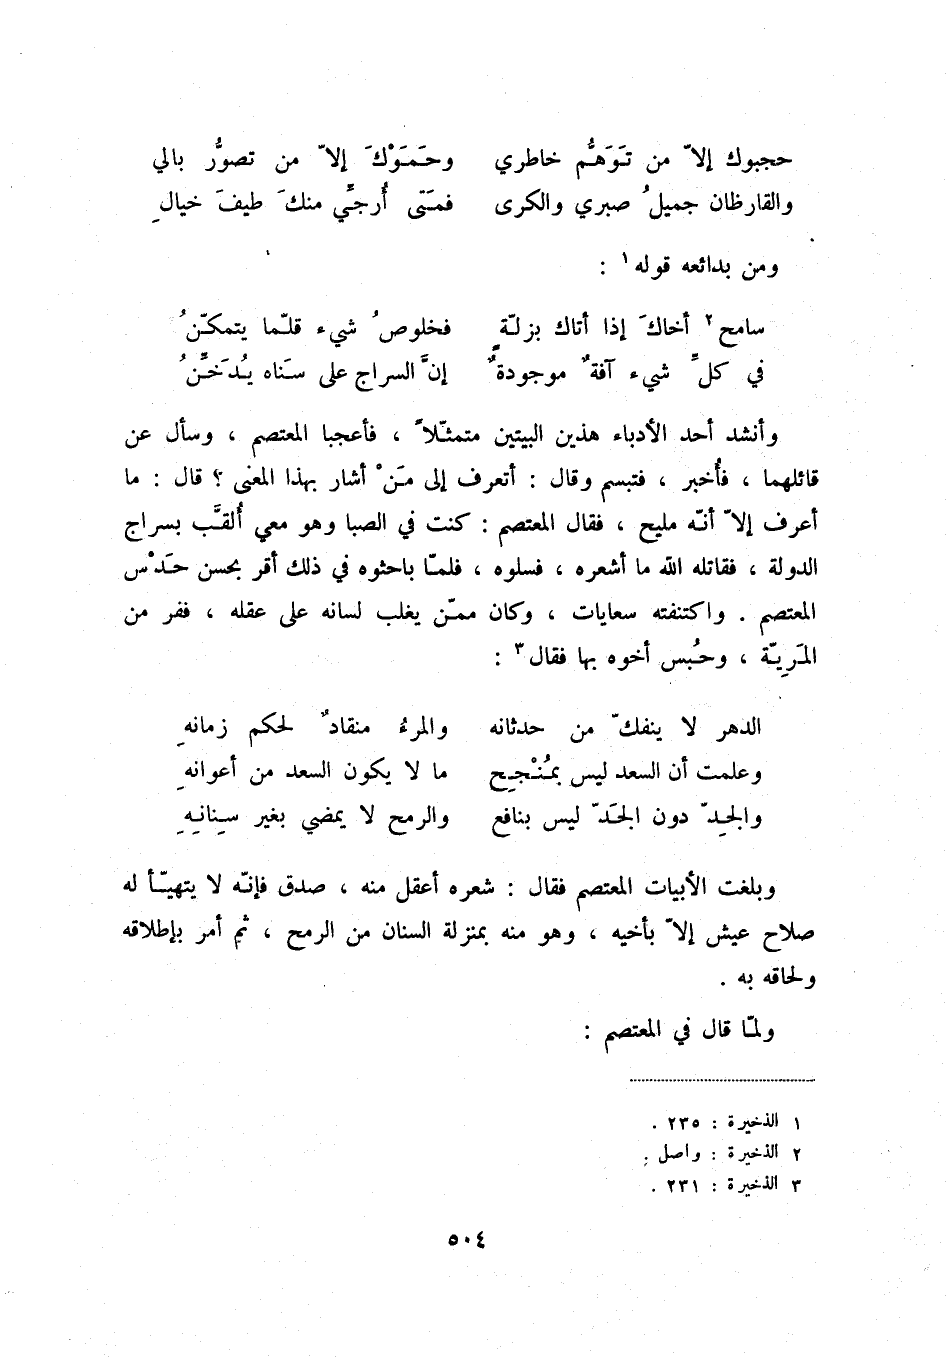 حجبوك إلاّ من تَوَهُّم خاطري وحَمَوْكَ إلاّ من تصوُّر بالي
والقارظان جميلُ صبري والكرى فمَتى أُرجِّي منكَ طيفَ خيالِ
ومن بدائعه قوله ١ :
سامح ٢ أخاكَ إذا أتاك بزلّةٍ فخلوصُ شيء قلّما يتمكّنُ
في كلِّ شيء آفةٌ موجودةٌ إنَّ السراج على سَناه يُدَخِّنُ
وأنشد أحد الأدباء هذين البيتين متمثّلاً ، فأعجبا المعتصم ، وسأل عن
قائلهما ، فأُخبر ، فتبسم وقال : أتعرف إلى مَنْ أشار بهذا المعنى ؟ قال : ما
أعرف إلاّ أنّه مليح ، فقال المعتصم : كنت في الصبا وهو معي أُلقَّب بسراج
الدولة ، فقاتله الله ما أشعره ، فسلوه ، فلمّا باحثوه في ذلك أقر بحسن حَدْس
المعتصم . واكتنفته سعايات ، وكان ممّن يغلب لسانه على عقله ، ففر من
المَرِيّة ، وحُبس أخوه بها فقال ٣ :
الدهر لا ينفكّ من حدثانه والمرءُ منقادٌ لحكم زمانهِ
وعلمت أن السعد ليس بمُنْجِحٍ ما لا يكون السعد من أعوانهِ
والجِدّ دون الجَدّ ليس بنافع والرمح لا يمضي بغير سِنانِهِ
وبلغت الأبيات المعتصم فقال : شعره أعقل منه ، صدق فإنّه لا يتهيّأ له
صلاح عيش إلاّ بأخيه ، وهو منه بمنزلة السنان من الرمح ، ثم أمر بإطلاقه
ولحاقه به .
ولمّا قال في المعتصم :
١ الذخيرة : ٢٣٥ .
٢ الذخيرة : واصل .
٣ الذخيرة : ٢٣١ .
٥٠٤